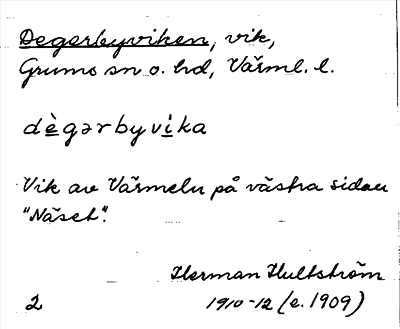 Degerbyviken, vik,
Grums sn o. hd, Värml. l.
dègərbyvìka
Vik av Värmeln på västra sidan
"Näset".
Herman Hultström
2 1910-12 (e. 1909)